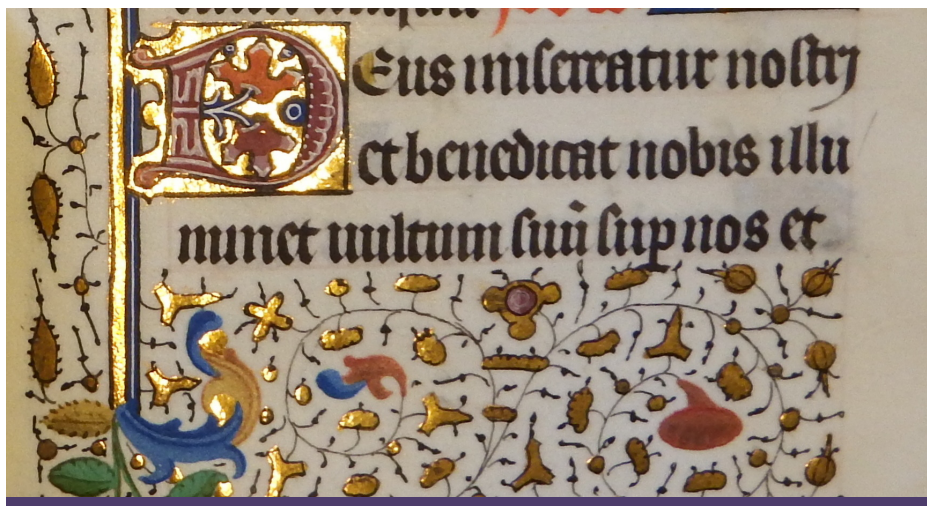 Deus misereatur nostri
et benedicat nobis illu
minet uultum suū sup nos et